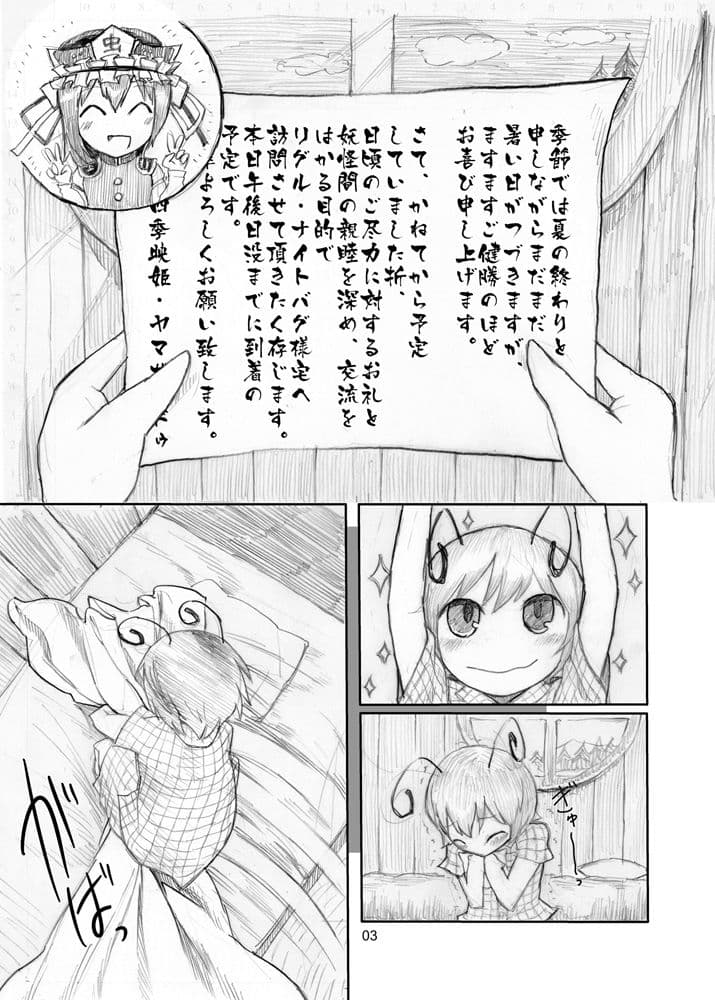 季節では夏の終わりと
申しながらまだまだ
暑い日がつづきますが、
ますますご健勝のほど
お喜び申し上げます。
さて、かねてから予定
していました折、
日頃のご尽力に対するお礼と
妖怪間の親睦を深め、交流を
はかる目的で
リグル・ナイトバグ様宅へ
訪問させて頂きたく存じます。
本日午後日没までに到着の
予定です。
よろしくお願い致します。
四季映姫・ヤマザ
虫
ぎゅーっ
がばっ
03